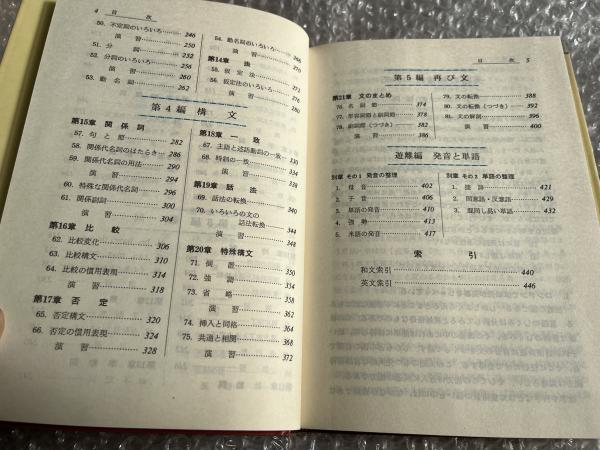 4 目 次
50. 不定詞のいろいろ……246
演 習……250
51. 分 詞……252
52. 分詞のいろいろ……256
演 習……260
53. 動 名 詞……262
54. 動名詞のいろいろ……266
演 習……270
第14章 法
55. 仮 定 法……272
56. 仮定法のいろいろ……276
演 習……280
第4編 構 文
第15章 関 係 詞
57. 句 と 節……282
58. 関係代名詞のはたらき…286
59. 関係代名詞の用法……290
演 習……294
60. 特殊な関係代名詞……296
61. 関係副詞……300
演 習……304
第16章 比 較
62. 比較変化……306
63. 比較構文……310
64. 比較の慣用表現……314
演 習……318
第17章 否 定
65. 否定構文……320
66. 否定の慣用表現……324
演 習……328
第18章 一 致
67. 主語と述語動詞の一致…330
68. 時制の一致……334
演 習……338
第19章 話 法
69. 話法の転換……340
70. いろいろの文の
話法転換……344
演 習……348
第20章 特殊構文
71. 倒 置……350
72. 強 調……354
73. 省 略……358
演 習……362
74. 挿入と同格……364
75. 共通と相関……368
演 習……372
目 次 5
第5編 再び文
第21章 文のまとめ
76. 名 詞 節……374
77. 形容詞節と副詞節……378
78. 副詞節(つづき)……382
演 習……386
79. 文の転換……388
80. 文の転換(つづき)……392
81. 文の解剖……396
演 習……400
遊離編 発音と単語
別章 その1 発音の整理
1. 母 音……402
2. 子 音……406
3. 単語の発音……410
4. 強 勢……413
5. 米語の発音……417
別章 その2 単語の整理
1. 接 辞……421
2. 同意語・反意語……429
3. 混同し易い単語……432
索 引
和文索引……440
英文索引……446